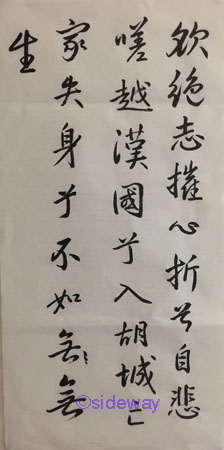 欲絕志摧心折兮自悲
嗟越漢國兮入胡城亡
家失身兮不如無無
生
©sideway